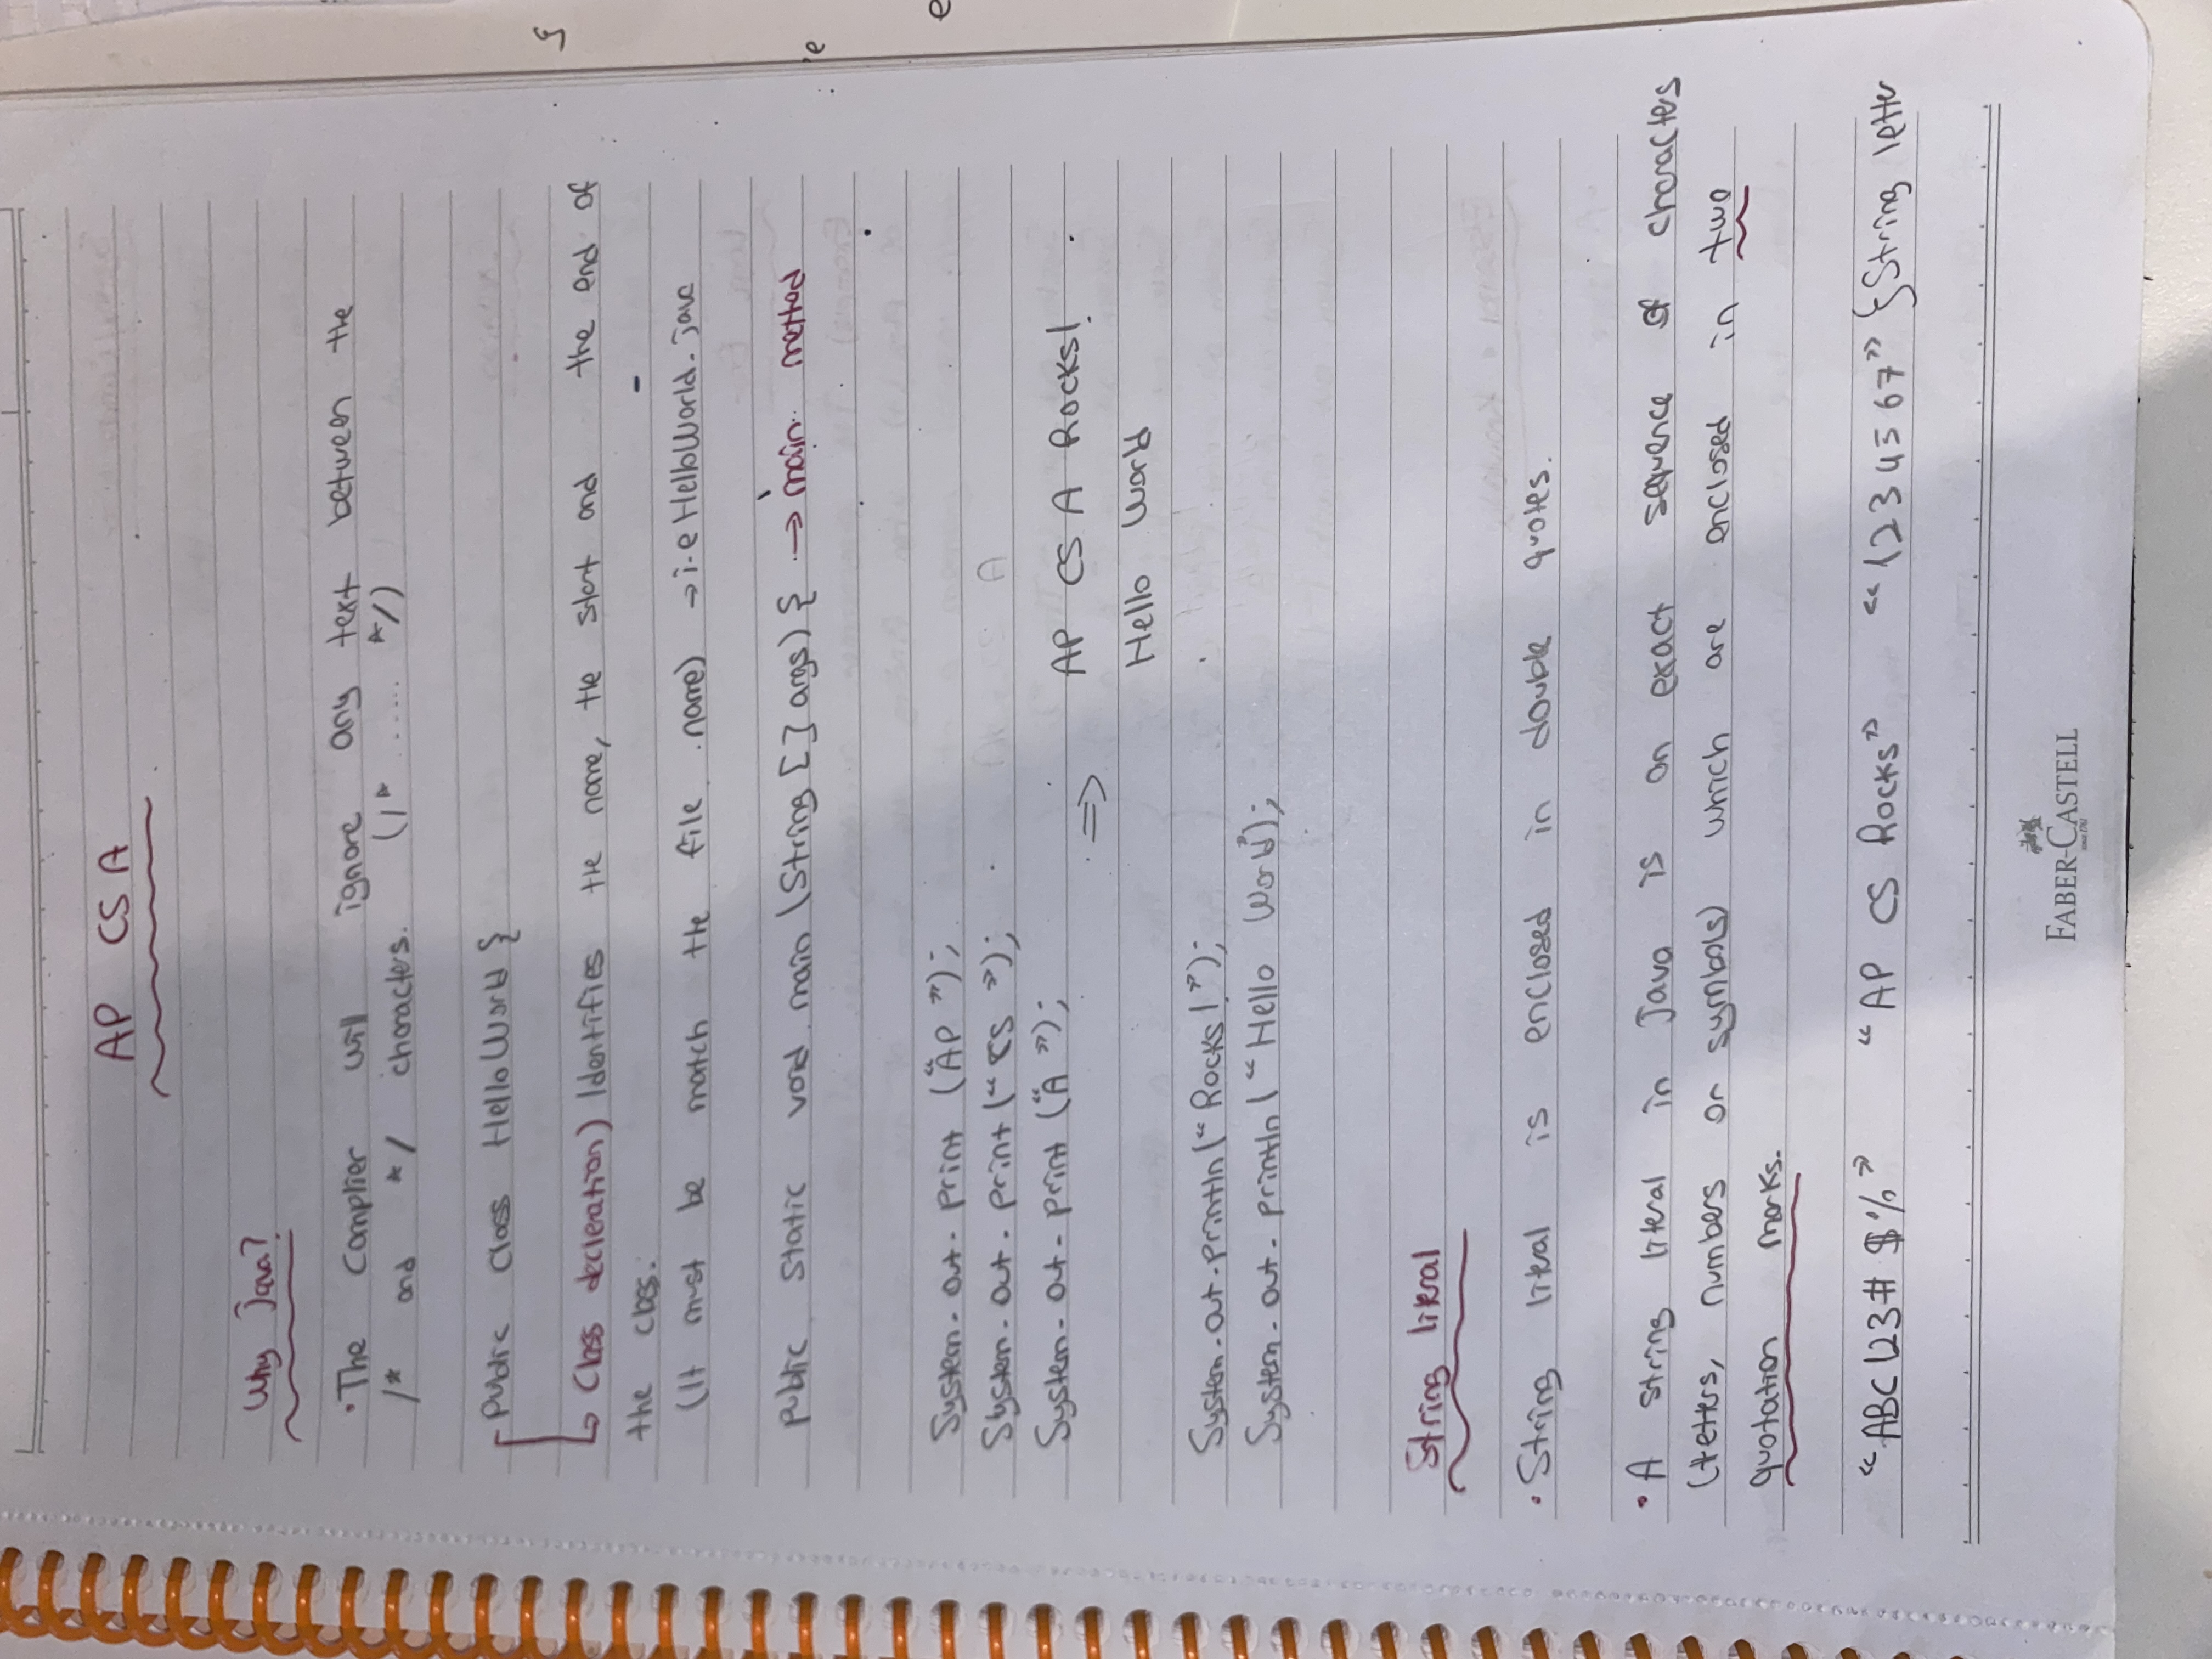 AP CS A
Why Java?
•The Complier will ignore any text between the
/* and */ characters. (/* ...... */)
Public Class HelloWorld {
Class decleration) Identifies the name, the start and the end of
the class.
(It must be match the file name) →i.e HelloWorld.java
public static void main (String [] args) { → main method
System.out.print ("AP ");
System.out.print ("CS ");
System.out.print ("A ");
⇒ AP CS A Rocks!
Hello World
System.out.println("Rocks!");
System.out.println("Hello World");
String literal
•String literal is enclosed in double quotes.
•A string literal in Java is an exact sequence of characters
(letters, numbers or symbols) which are enclosed in two
quotation marks.
"ABC123#$%" "AP CS Rocks" "1234567" } String letter
FABER-CASTELL
since 1761
e
e